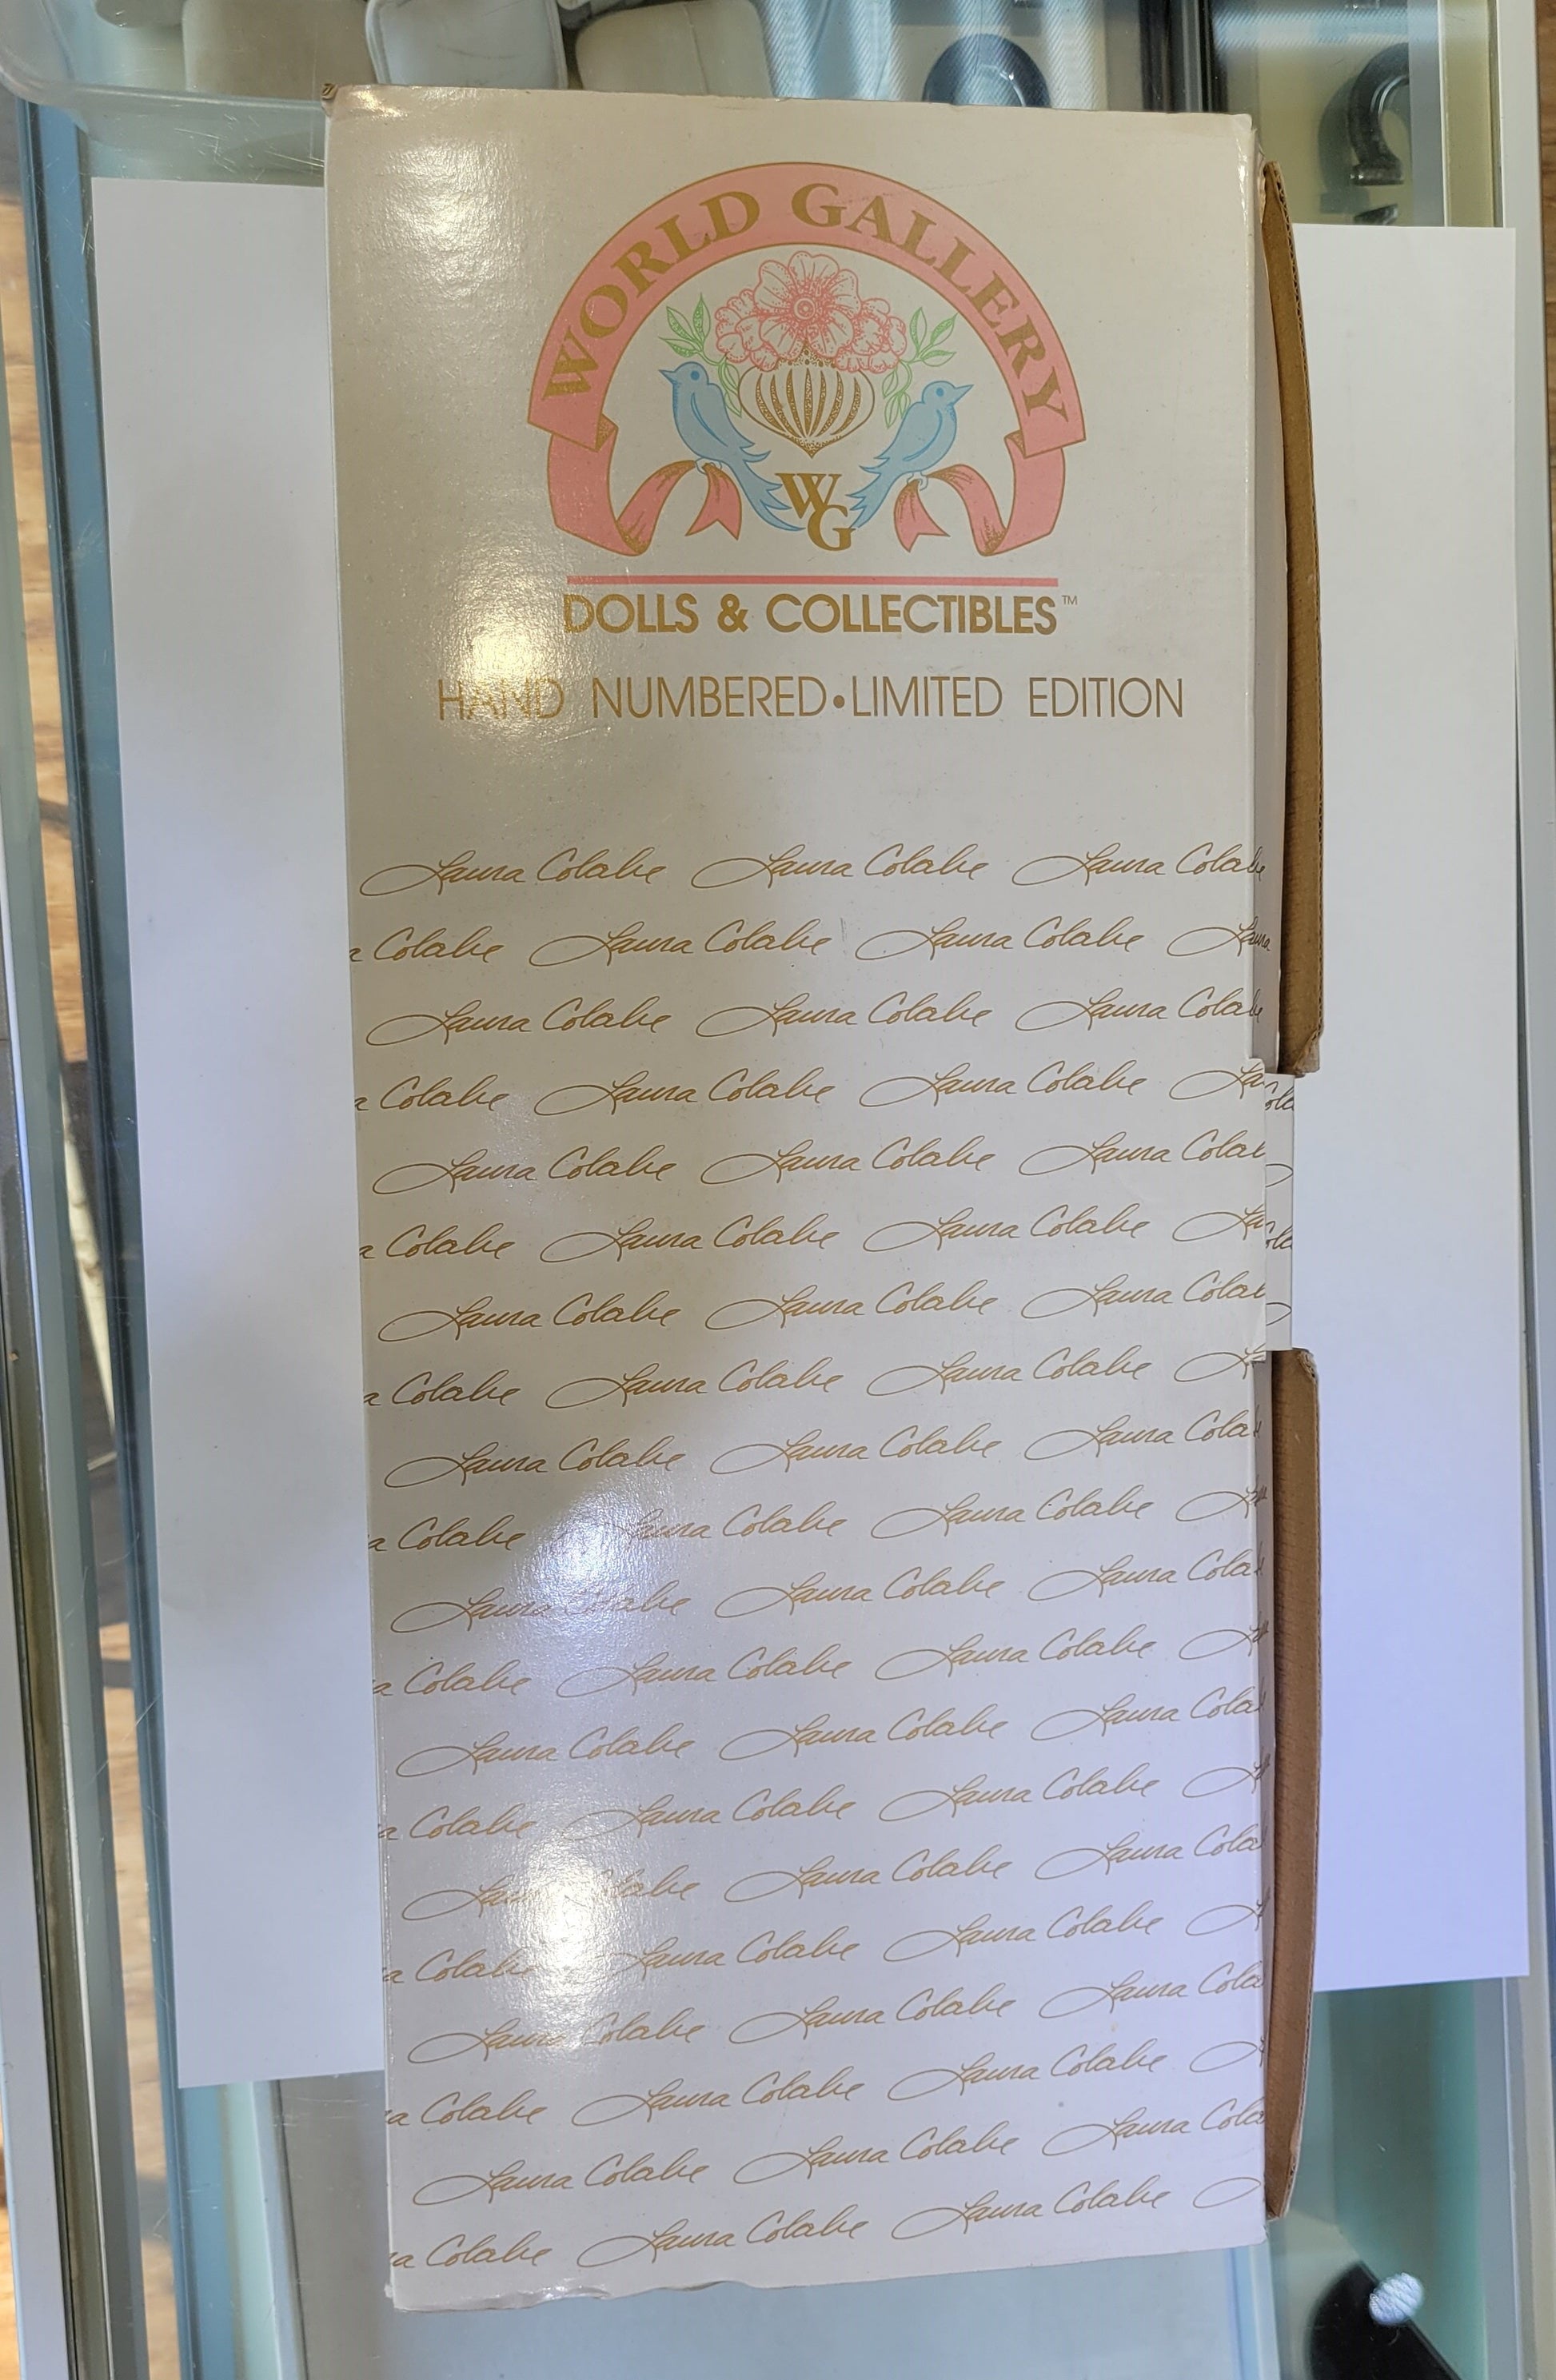 WORLD GALLERY
WG
DOLLS & COLLECTIBLES™
HAND NUMBERED•LIMITED EDITION
Laura Colabe Laura Colabe Laura Colabe
a Colabe Laura Colabe Laura Colabe Laura
Laura Colabe Laura Colabe Laura Colab
a Colabe Laura Colabe Laura Colabe Lau
Laura Colabe Laura Colabe Laura Colab
a Colabe Laura Colabe Laura Colabe Lau
Laura Colabe Laura Colabe Laura Colab
a Colabe Laura Colabe Laura Colabe L
Laura Colabe Laura Colabe Laura Cola
a Colabe Laura Colabe Laura Colabe L
Laura Colabe Laura Colabe Laura Cola
a Colabe Laura Colabe Laura Colabe L
Laura Colabe Laura Colabe Laura Cola
a Colabe Laura Colabe Laura Colabe L
Laura Colabe Laura Colabe Laura Cola
a Colabe Laura Colabe Laura Colabe L
Laura Colabe Laura Colabe Laura Cola
a Colabe Laura Colabe Laura Colabe
Laura Colabe Laura Colabe Laura Cola
a Colabe Laura Colabe Laura Colabe